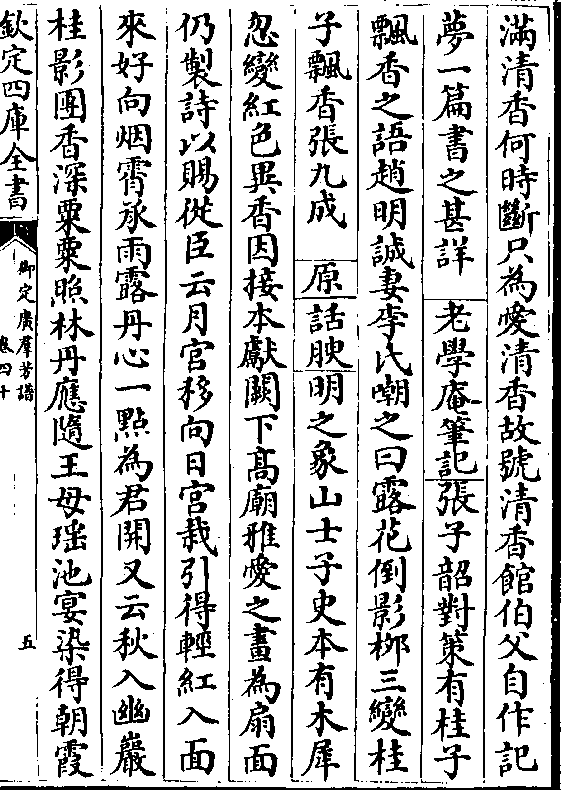 滿清香何時斷只為愛清香故號清香館伯父自作記
夢一篇書之甚詳 老學庵筆記張子韶對策有桂子
飄香之語趙明誠妻李氏嘲之曰露花倒影栁三變桂
子飄香張九成 原話腴明之象山士子史本有木犀
忽變紅色異香因接本獻闕下髙廟雅愛之畫為扇面
仍製詩以賜從臣云月宫移向日宫栽引得輕紅入面
來好向烟霄承雨露丹心一點為君開又云秋入幽巖
桂影團香深粟粟照林丹應隨王母瑶池宴染得朝霞
欽定四庫全書
御定廣羣芳譜
卷四十
五